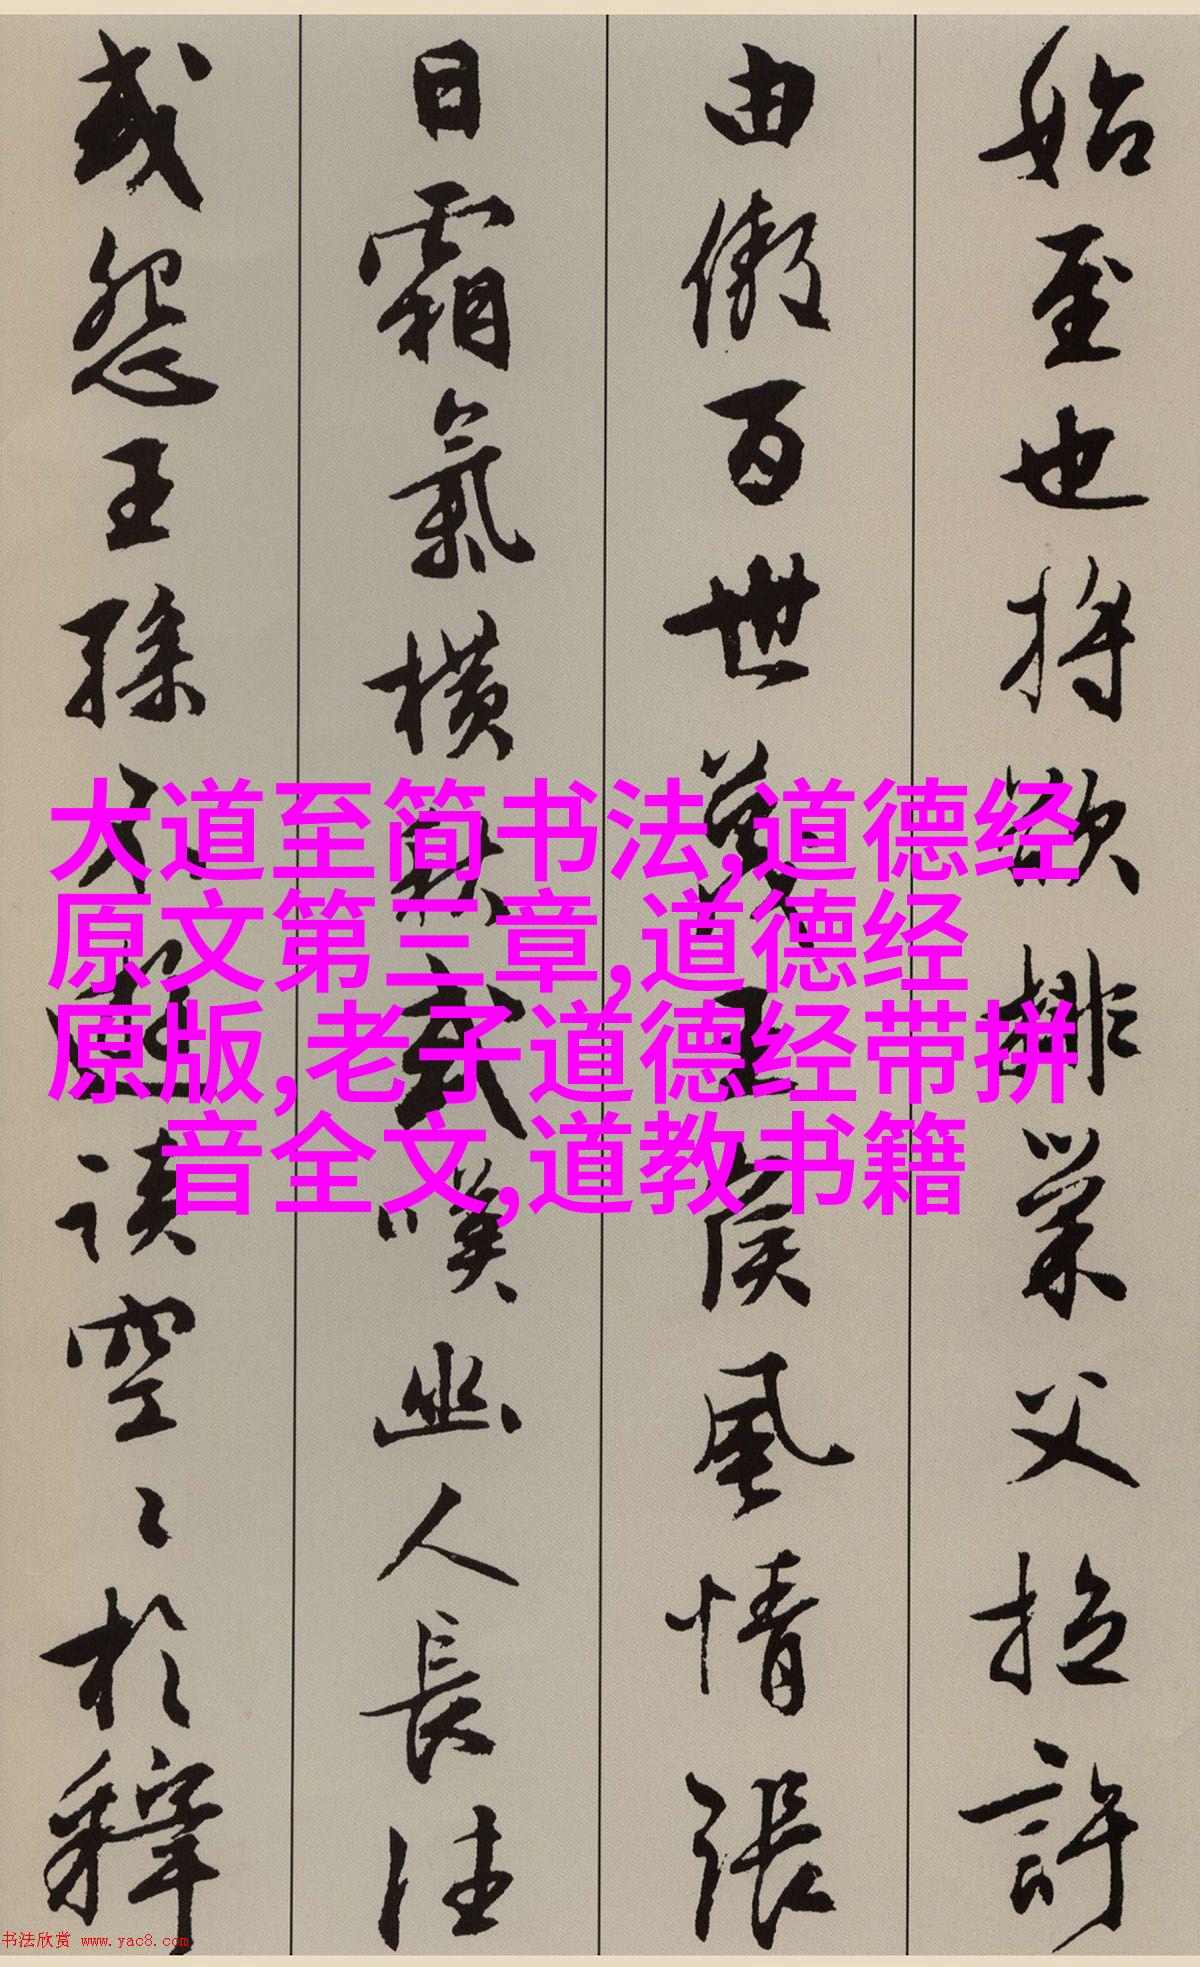 始至也將欲排巢父拉許
由傲百世蔑王侯風情張
日霜氣橫秋或嘆幽人長往
或怨王孫不遊談空〻於釋
大道至简书法,道德经
原文第三章,道德经
原版,老子道德经带拼
音全文,道教书籍
书法欣赏 www.yac8.com